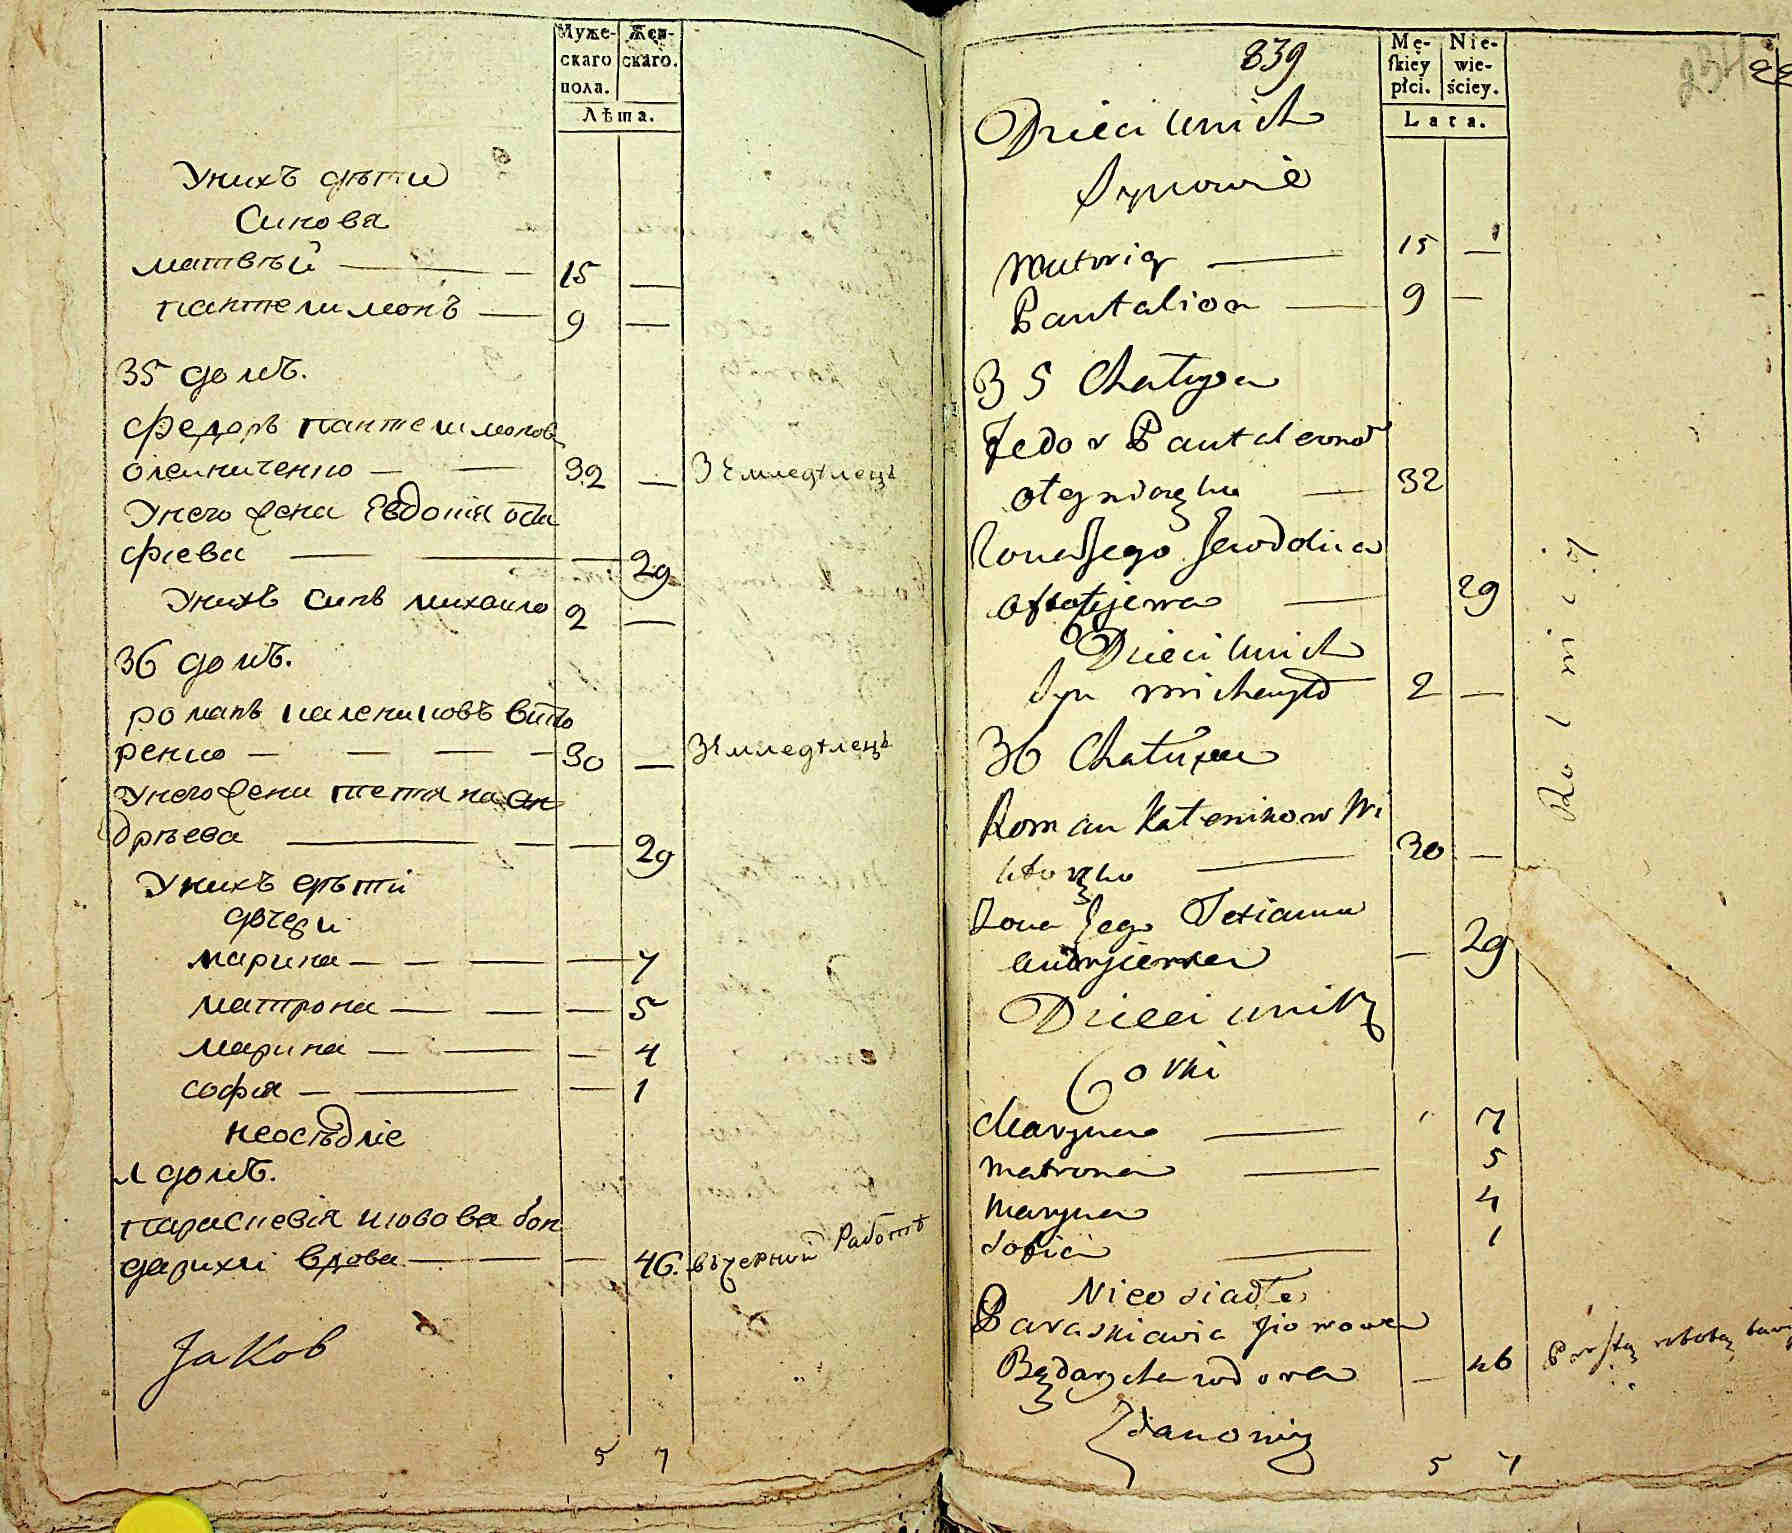 Муже-
скаго
пола.
Жен-
скаго.
Лѣта.
Унихъ дѣти
Синова
матвѣй — 15 —
пантелимонъ — 9 —
35 домъ.
федоръ пантелимоновъ
олеиниченко — 32 — Землѣделецъ
Унего жена Евдокія оста
фіева — 29
Унихъ синъ михаило 2 —
36 домъ.
романъ калениковъ вихто
ренко — 30 — Землѣделецъ
Унего жена тетяна ан
дрѣева — 29
Унихъ дѣти
дочери
марина — 7
матрона — 5
марина — 4
софія — 1
неосѣдліе
1 домъ.
параскевія іювова бон
дариха вдова — 46. вчерний Работѣ
Jakob
5 7
839
Mę-
ſkiey
płci.
Nie-
wie-
ściey.
Lata.
Dzieci Unich
Synowie
Matwiy — 15 —
Pantalion — 9 —
35 Chatupa
Fedor Pantaleonow
Oleyniczenko — 32
Zona Jego Jewdokia
Astafijewa — 29
Dzieci Unich
Syn Michayło 2 —
36 Chatupa
Roman Kalenikow Wi
chtorenko — 30 —
Zona Jego Tetianna
Andryiewa — 29
Dzieci Unich
Corki
Maryna — 7
Matrona — 5
Maryna 4
Sofia — 1
Nieosiadłe
Paraskiewia Jiowowa
Bądarycha wdowa — 46
Zdanowicz
5 7
Rolnicy